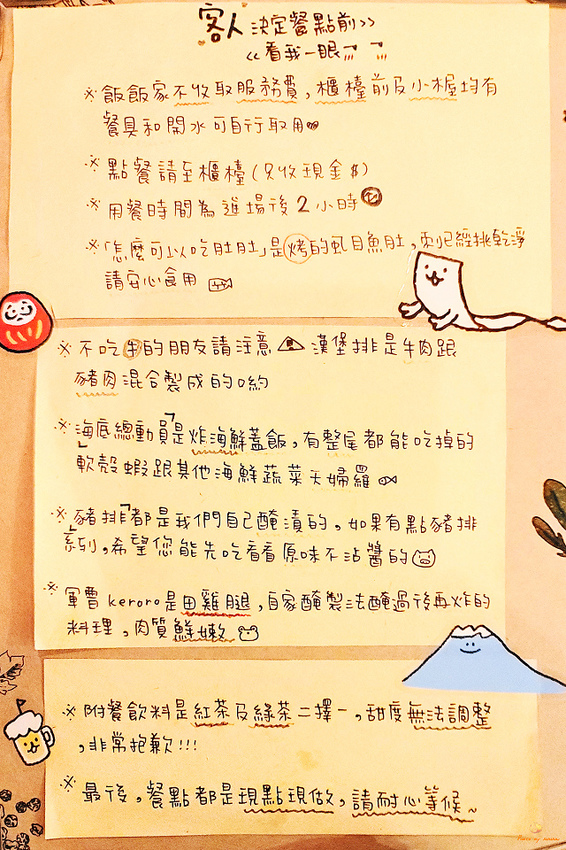 客人決定餐點前>>
<<看我一眼
※飯飯家不收取服務費，櫃檯前及小桯均有
餐具和開水可自行取用
※點餐請至櫃檯(只收現金$)
※用餐時間為進場後2小時
※「怎麼可以吃肚肚」是烤的虱目魚肚，刺已經挑乾淨
請安心食用
※不吃牛的朋友請注意 漢堡排是牛肉跟
豬肉混合製成的喲
※「海底總動員」是炸海鮮蓋飯，有整尾都能吃掉的
軟殼蝦跟其他海鮮蔬菜天婦羅
※「豬排系列」都是我們自己醃漬的，如果有點豬排
，希望您能先吃看看原味不沾醬的
※軍曹keroro是田雞腿，自家醃製法醃過後再炸的
料理，肉質鮮嫩
※附餐飲料是紅茶及綠茶二擇一，甜度無法調整
，非常抱歉!!!
※最後，餐點都是現點現做，請耐心等候~